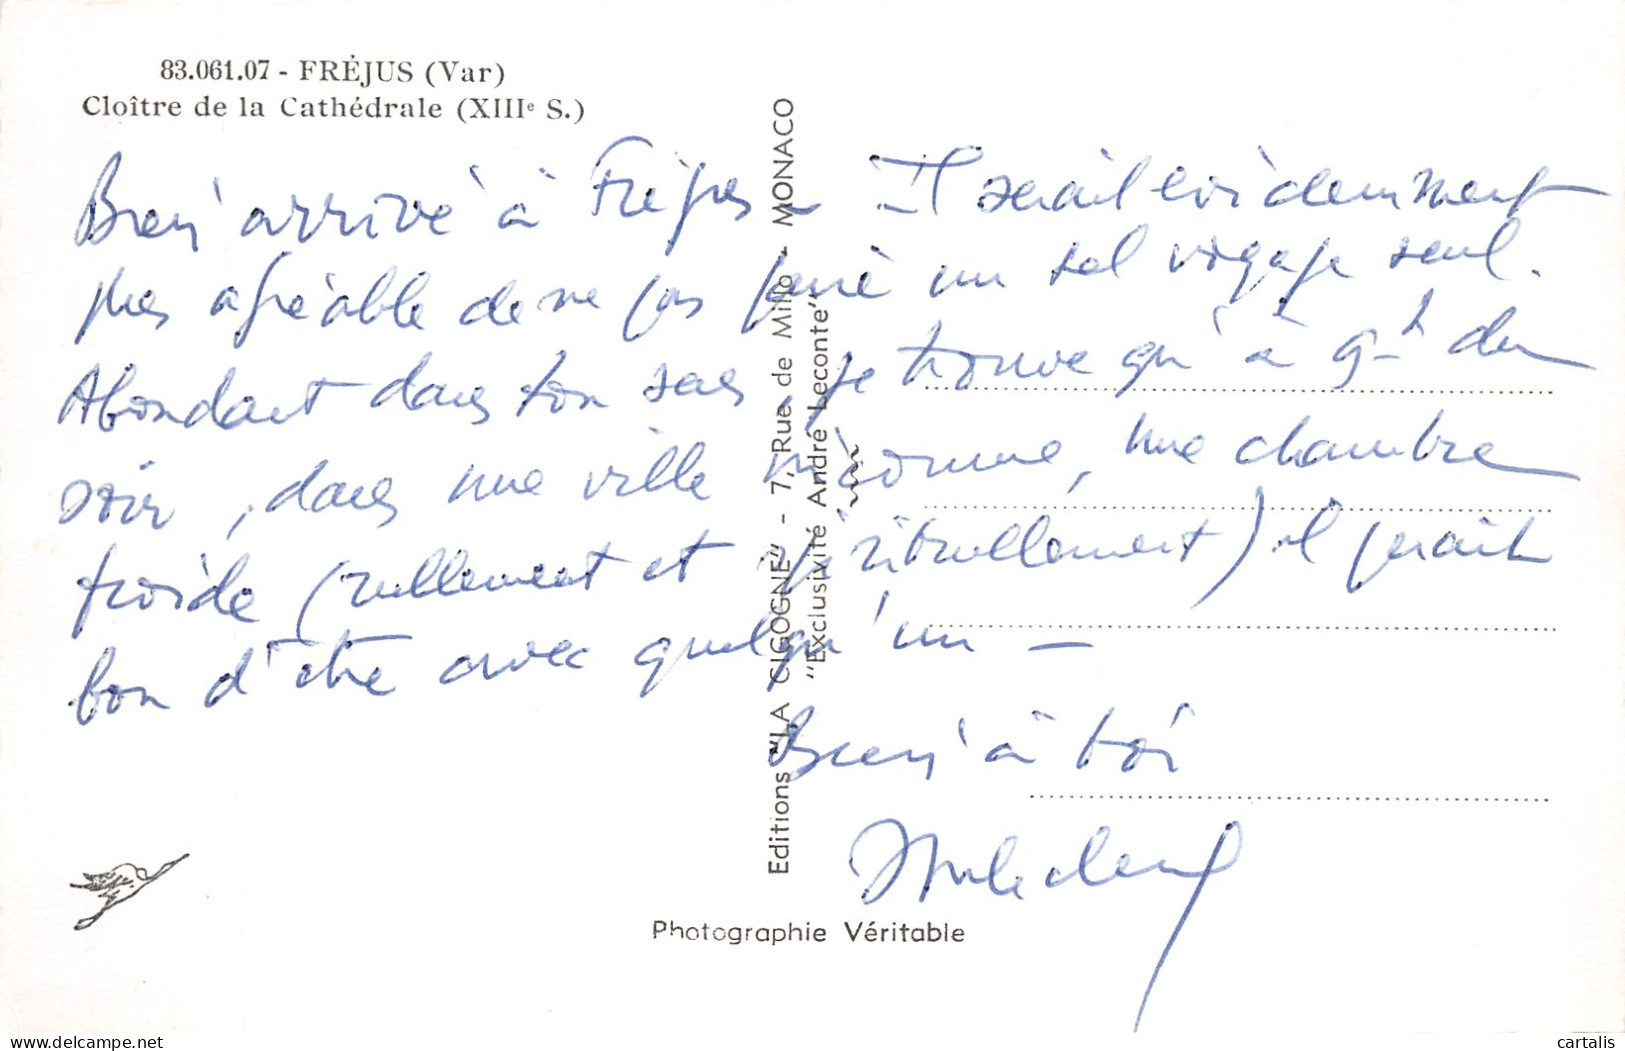 83.061.07 - FRÉJUS (Var)
Cloître de la Cathédrale (XIIIe S.)
Bien arrivé à Fréjus - Il serait évidemment
plus agréable de ne pas faire un tel voyage seul.
Abondant dans ton sens je trouve qu'à 9h du
soir, dans une ville inconnue, une chambre
froide (réellement et spirituellement) il ferait
bon d'être avec quelqu'un -
Bien à toi
Editions "LA CIGOGNE" - 7, Rue de Millo - MONACO
"Exclusivité André Leconte"
Photographie Véritable
cartalis